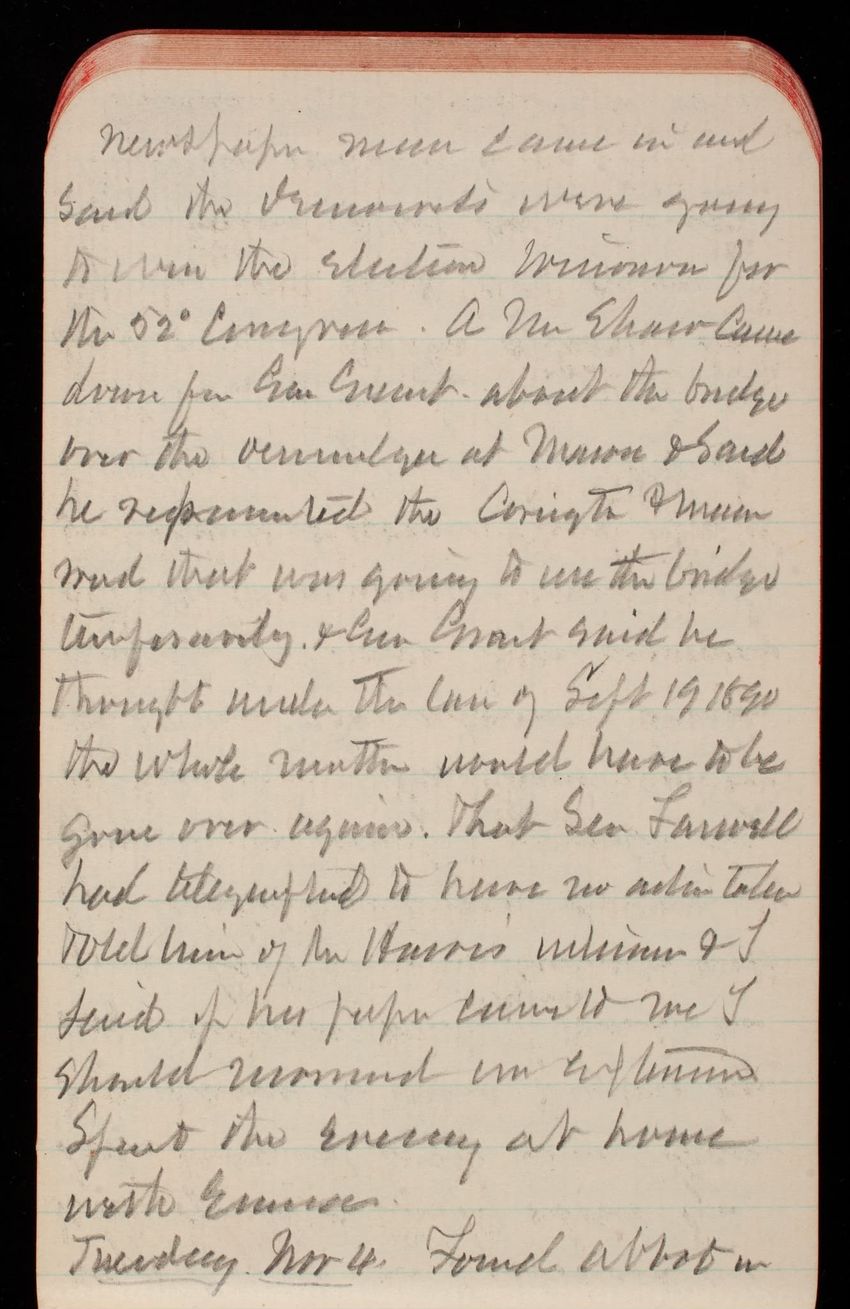 newspaper man came in and
said the democrats were going
to win the election tomorrow for
the 52° Congress. A Mr Shaw came
down for Gen Grant about the bridge
over the ocmulgee at Macon & said
he represented the Covington & Macon
road that was going to use the bridge
temporarily. & Gen Grant said he
thought under the law of Sept 19 1890
the whole matter would have to be
gone over again. That Sen Farwell
had telegraphed to have no action taken
told him of the Harris & I
said if his paper came to me I
should recommend an extension
Spent the evening at home
with Emma
Tuesday Nov 4. Found Abbot in